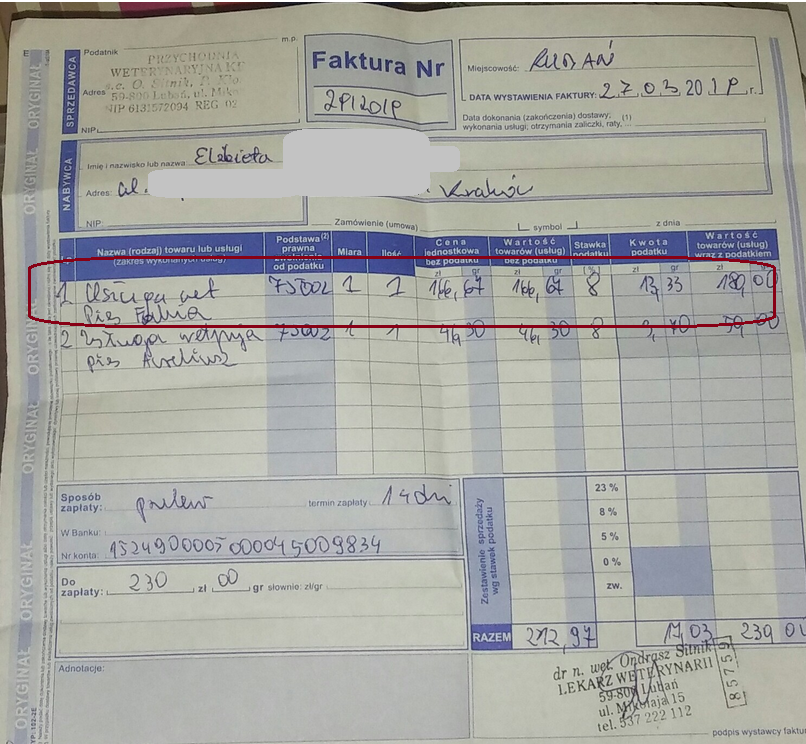 m.p.
Podatnik
PRZYCHODNIA
WETERYNARYJNA
s.c. O. Sitnik, P.
Adres
59-800 Lubań, ul.
NIP 6131572094 REG 02
NIP
SPRZEDAWCA
Faktura Nr
29/2019
Miejscowość: LUBAŃ
DATA WYSTAWIENIA FAKTURY: 27.03.2019 r.
Data dokonania (zakończenia) dostawy; (1)
wykonania usługi; otrzymania zaliczki, raty, ...
NABYWCA
Imię i nazwisko lub nazwa Elżbieta
Adres: al. Kraków
NIP:
Zamówienie (umowa) symbol z dnia
Nazwa (rodzaj) towaru lub usługi (zakres wykonanych usług) Podstawa (2) prawna zwolnienia od podatku Miara Ilość Cena jednostkowa bez podatku Wartość towarów (usług) bez podatku Stawka podatku Kwota podatku Wartość towarów (usług) wraz z podatkiem
zł gr zł gr (%) zł gr zł gr
1 Usługa wet 75002 1 1 166,67 166,67 8 13,33 180,00
Pies
2 Usługa wet 75002 1 1 46,30 46,30 8 3,70 50,00
pies
Sposób
zapłaty: przelew termin zapłaty 14 dni
W Banku:
Nr konta: 1524900005000045009834
Do
zapłaty: 230 zł 00 gr słownie: zł/gr
Zestawienie sprzedaży
wg stawek podatku
23 %
8 %
5 %
0 %
zw.
RAZEM 212,97 17,03 230 00
Adnotacje:
dr n. wet. Ondrasz Sitnik
LEKARZ WETERYNARII
59-800 Lubań
ul. Mikołaja 15
tel. 537 222 112
85759
podpis wystawcy faktur
ORYGINAŁ
ORYGINAŁ
ORYGINAŁ
ORYGINAŁ
ORYGINAŁ